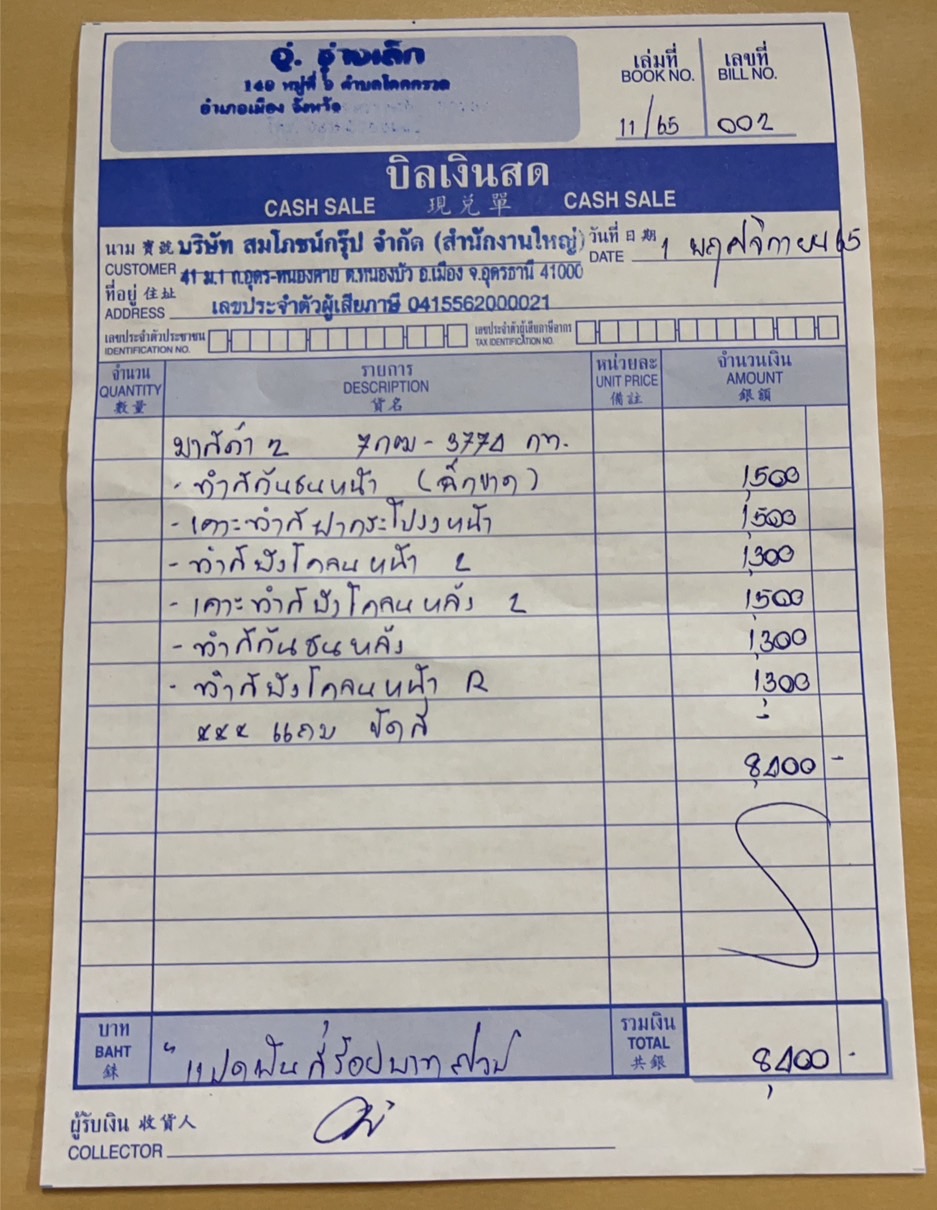 อู่ ช่างเล็ก
149 หมู่ที่ 6 ตำบลโคกกรวด
อำเภอเมือง จังหวัด
เล่มที่
BOOK NO.
11/65
เลขที่
BILL NO.
002
บิลเงินสด
CASH SALE 現兌單 CASH SALE
นาม 寶號 บริษัท สมโภชน์กรุ๊ป จำกัด (สำนักงานใหญ่)
CUSTOMER 41 ม.1 ถ.อุดร-หนองคาย ต.หนองบัว อ.เมือง จ.อุดรธานี 41000
ที่อยู่ 住址 เลขประจำตัวผู้เสียภาษี 0415562000021
ADDRESS
วันที่ 日期 1 พฤศจิกายน 65
DATE
เลขประจำตัวประชาชน
IDENTIFICATION NO.
เลขประจำตัวผู้เสียภาษีอากร
TAX IDENTIFICATION NO.
จำนวน
QUANTITY
數量
รายการ
DESCRIPTION
貨名
หน่วยละ
UNIT PRICE
備註
จำนวนเงิน
AMOUNT
銀額
มาสด้า 2 7กฒ - 3774 กท.
- ทำสีกันชนหน้า (ฉีกขาด) 1,500
- เคาะทำสีฝากระโปรงหน้า 1,500
- ทำสีบังโคลนหน้า L 1,300
- เคาะทำสีบังโคลนหลัง L 1,500
- ทำสีกันชนหลัง 1,300
- ทำสีบังโคลนหน้า R 1,300
*** แถม ขัดสี -
8,400 -
บาท
BAHT
銖
" แปดพันสี่ร้อยบาทถ้วน
รวมเงิน
TOTAL
共銀
8,400 -
ผู้รับเงิน 收貨人
COLLECTOR